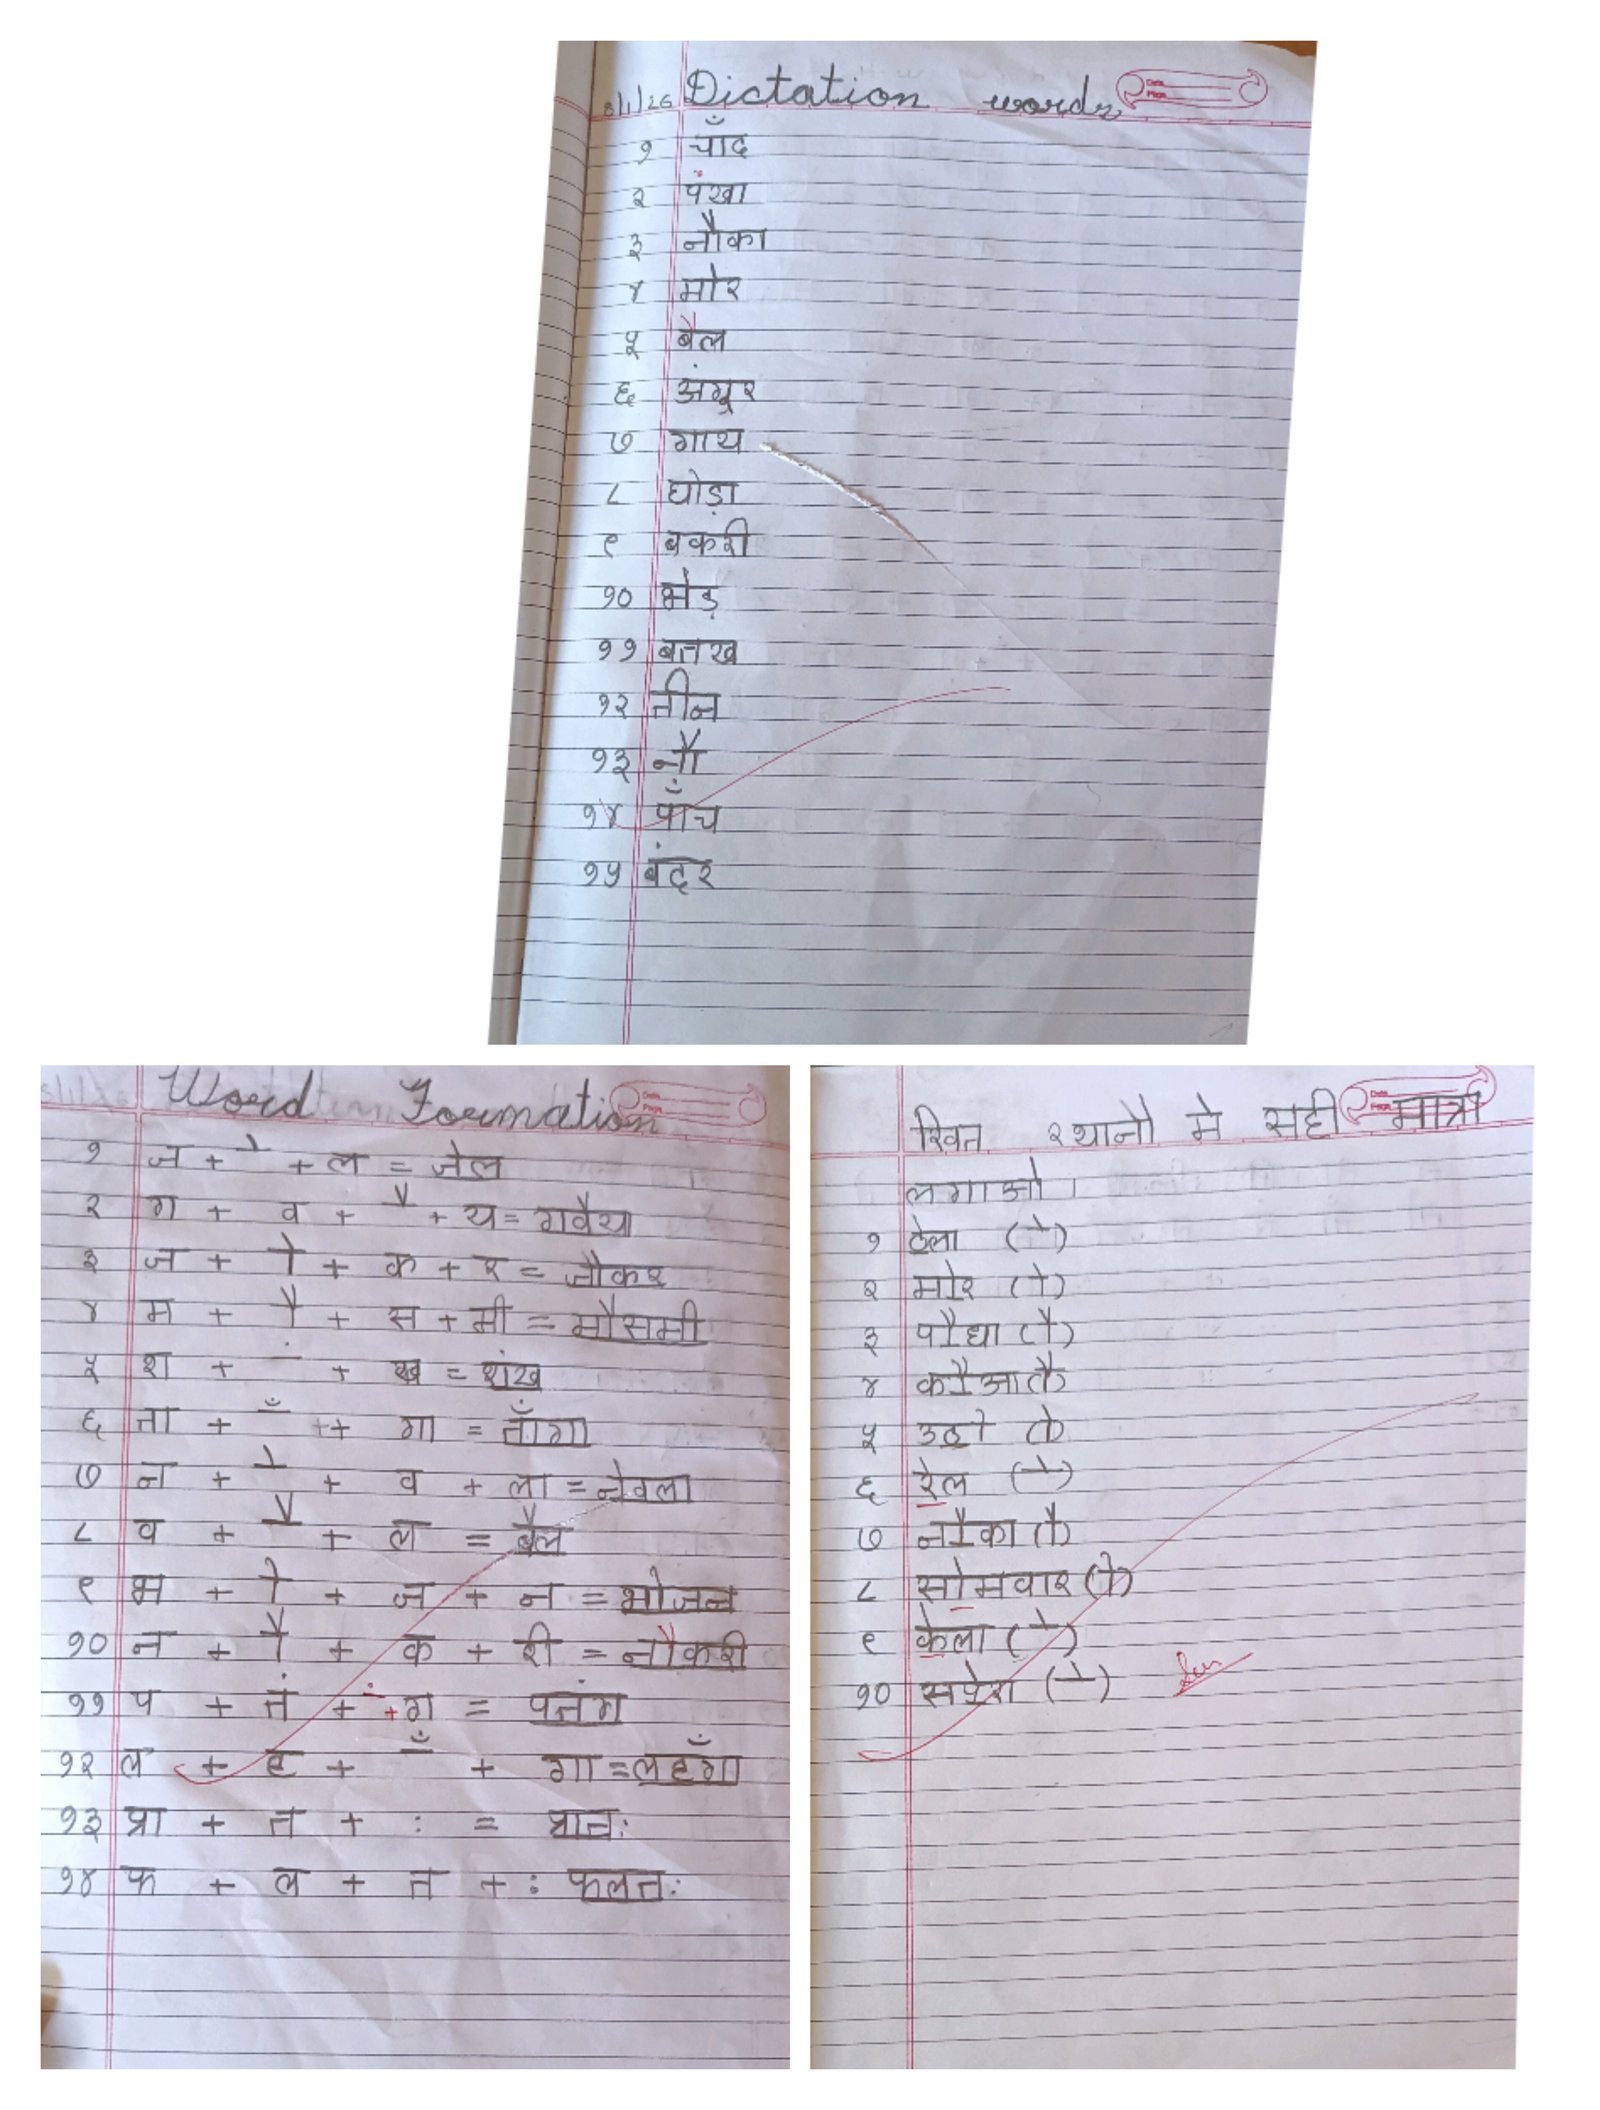 8/1/26 Dictation words
Date
Page
१ चाँद
२ पंखा
३ नौका
४ मोर
५ बैल
६ अंगूर
७ गाय
८ घोड़ा
९ बकरी
१० भेड़
११ बतख
१२ तीन
१३ नौ
१४ पाँच
१५ बंदर
Word Formation
Date
Page
१ ज + े + ल = जेल
२ ग + व + ै + य = गवैया
३ ज + ो + क + र = जोकर
४ म + ौ + स + मी = मौसमी
५ श + ं + ख = शंख
६ ता + ँ ++ गा = ताँगा
७ न + े + व + ला = नेवला
८ व + ै + ल = बैल
९ भ + ो + ज + न = भोजन
१० न + ौ + क + री = नौकरी
११ प + तं + ं + ग = पतंग
१२ ल + ह + ँ + गा = लहँगा
१३ प्रा + त + : = प्रातः
१४ फ + ल + त + : फलतः
Date
Page
रिक्त स्थानों मे सही मात्रा
लगाओ ।
१ ठेला (े)
२ मोर (ो)
३ पौधा (ौ)
४ कौआ (ौ)
५ उठो (ो)
६ रेल (े)
७ नौका (ौ)
८ सोमवार (ो)
९ केला (े)
१० सपेरा (े)